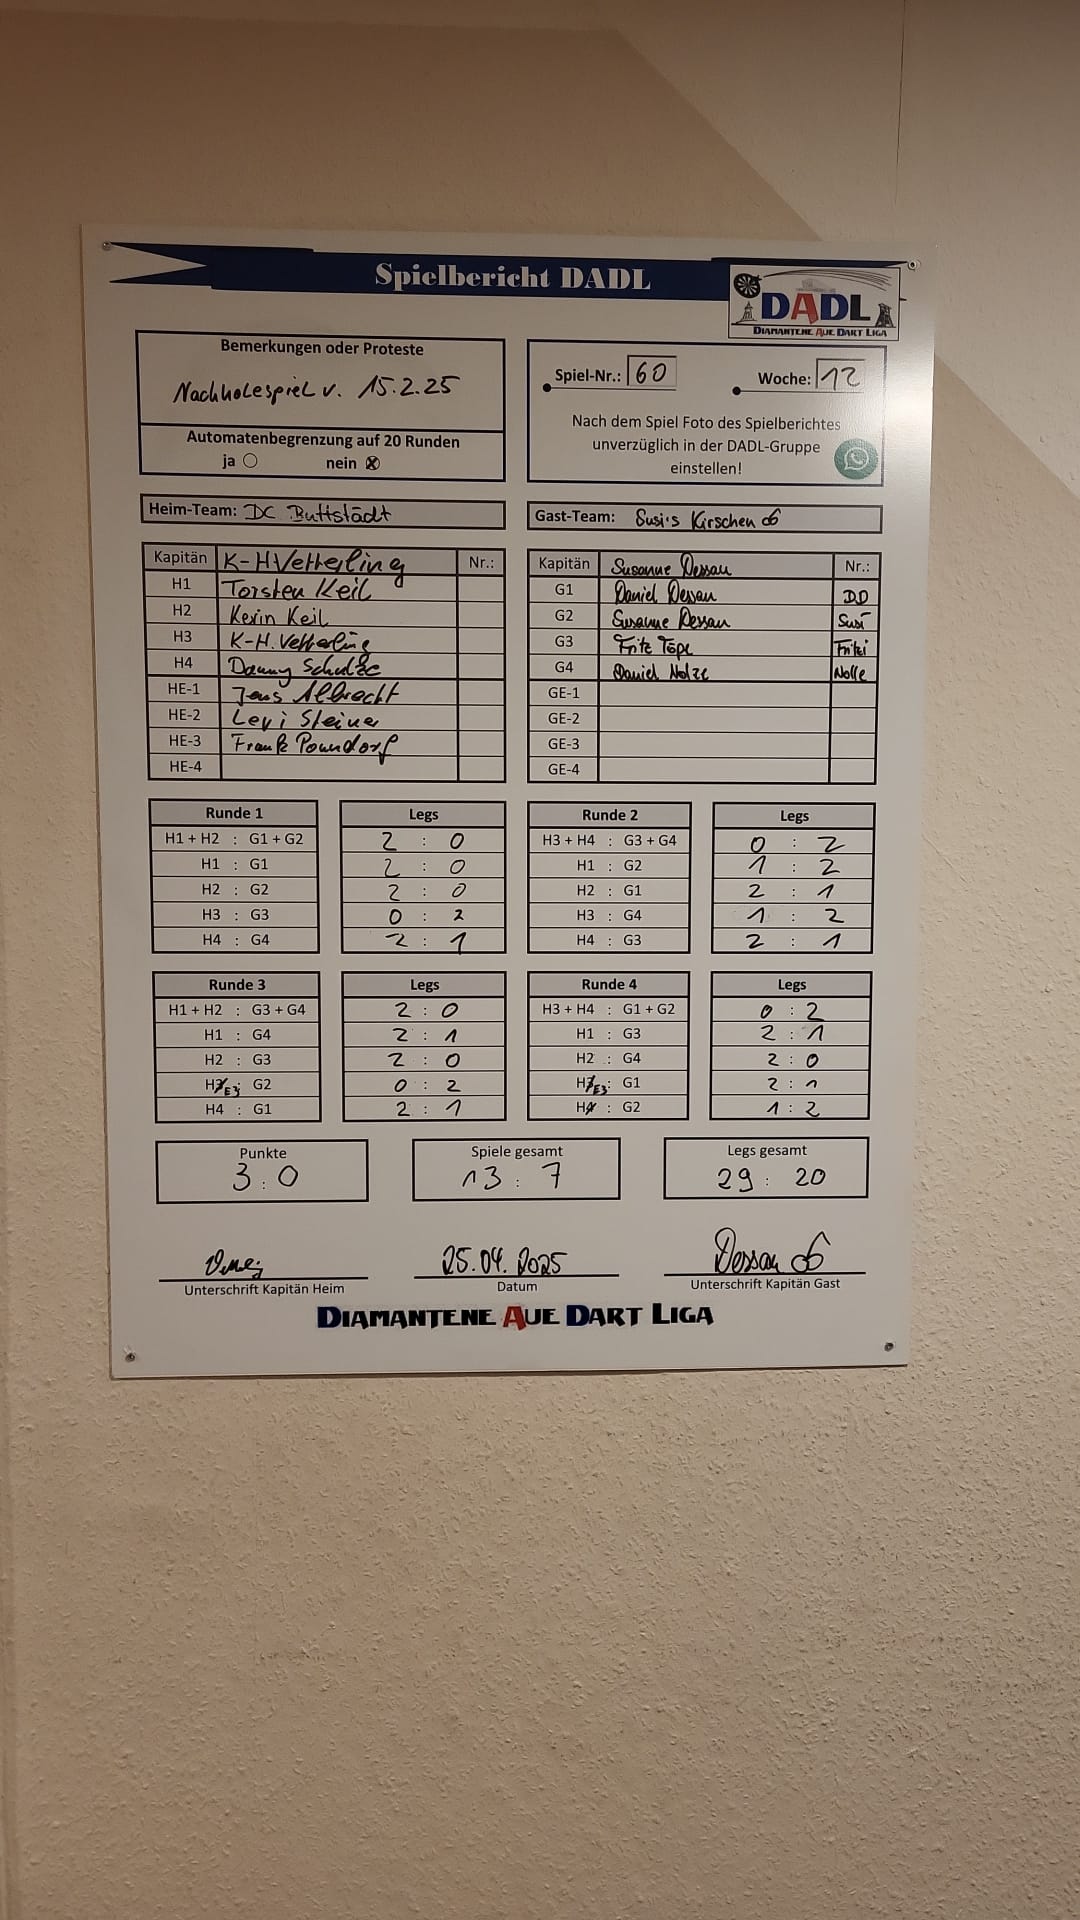 Spielbericht DADL
DADL
DIAMANTENE AUE DART LIGA
Bemerkungen oder Proteste
Nachholespiel v. 15.2.25
Automatenbegrenzung auf 20 Runden
ja nein
Spiel-Nr.: 60 Woche: 12
Nach dem Spiel Foto des Spielberichtes
unverzüglich in der DADL-Gruppe
einstellen!
Heim-Team: DC Buttstädt
Gast-Team: Susi's Kirschen
Kapitän K-H Vetterling Nr.:
H1 Torsten Keil
H2 Kevin Keil
H3 K-H. Vetterling
H4 Danny Schulze
HE-1 Jens Albrecht
HE-2 Levi Steiner
HE-3 Frank Poundorf
HE-4
Kapitän Susanne Dessau Nr.:
G1 Daniel Dessau DD
G2 Susanne Dessau Susi
G3 Fritz Töpe Fritzi
G4 Daniel Nolze Nolle
GE-1
GE-2
GE-3
GE-4
Runde 1 Legs
H1 + H2 : G1 + G2 2 : 0
H1 : G1 2 : 0
H2 : G2 2 : 0
H3 : G3 0 : 2
H4 : G4 2 : 1
Runde 2 Legs
H3 + H4 : G3 + G4 0 : 2
H1 : G2 1 : 2
H2 : G1 2 : 1
H3 : G4 1 : 2
H4 : G3 2 : 1
Runde 3 Legs
H1 + H2 : G3 + G4 2 : 0
H1 : G4 2 : 1
H2 : G3 2 : 0
HE3 : G2 0 : 2
H4 : G1 2 : 1
Runde 4 Legs
H3 + H4 : G1 + G2 0 : 2
H1 : G3 2 : 1
H2 : G4 2 : 0
HE3 : G1 2 : 1
H4 : G2 1 : 2
Punkte
3 : 0
Spiele gesamt
13 : 7
Legs gesamt
29 : 20
25.04.2025
Dessau
Unterschrift Kapitän Heim
Datum
Unterschrift Kapitän Gast
DIAMANTENE AUE DART LIGA